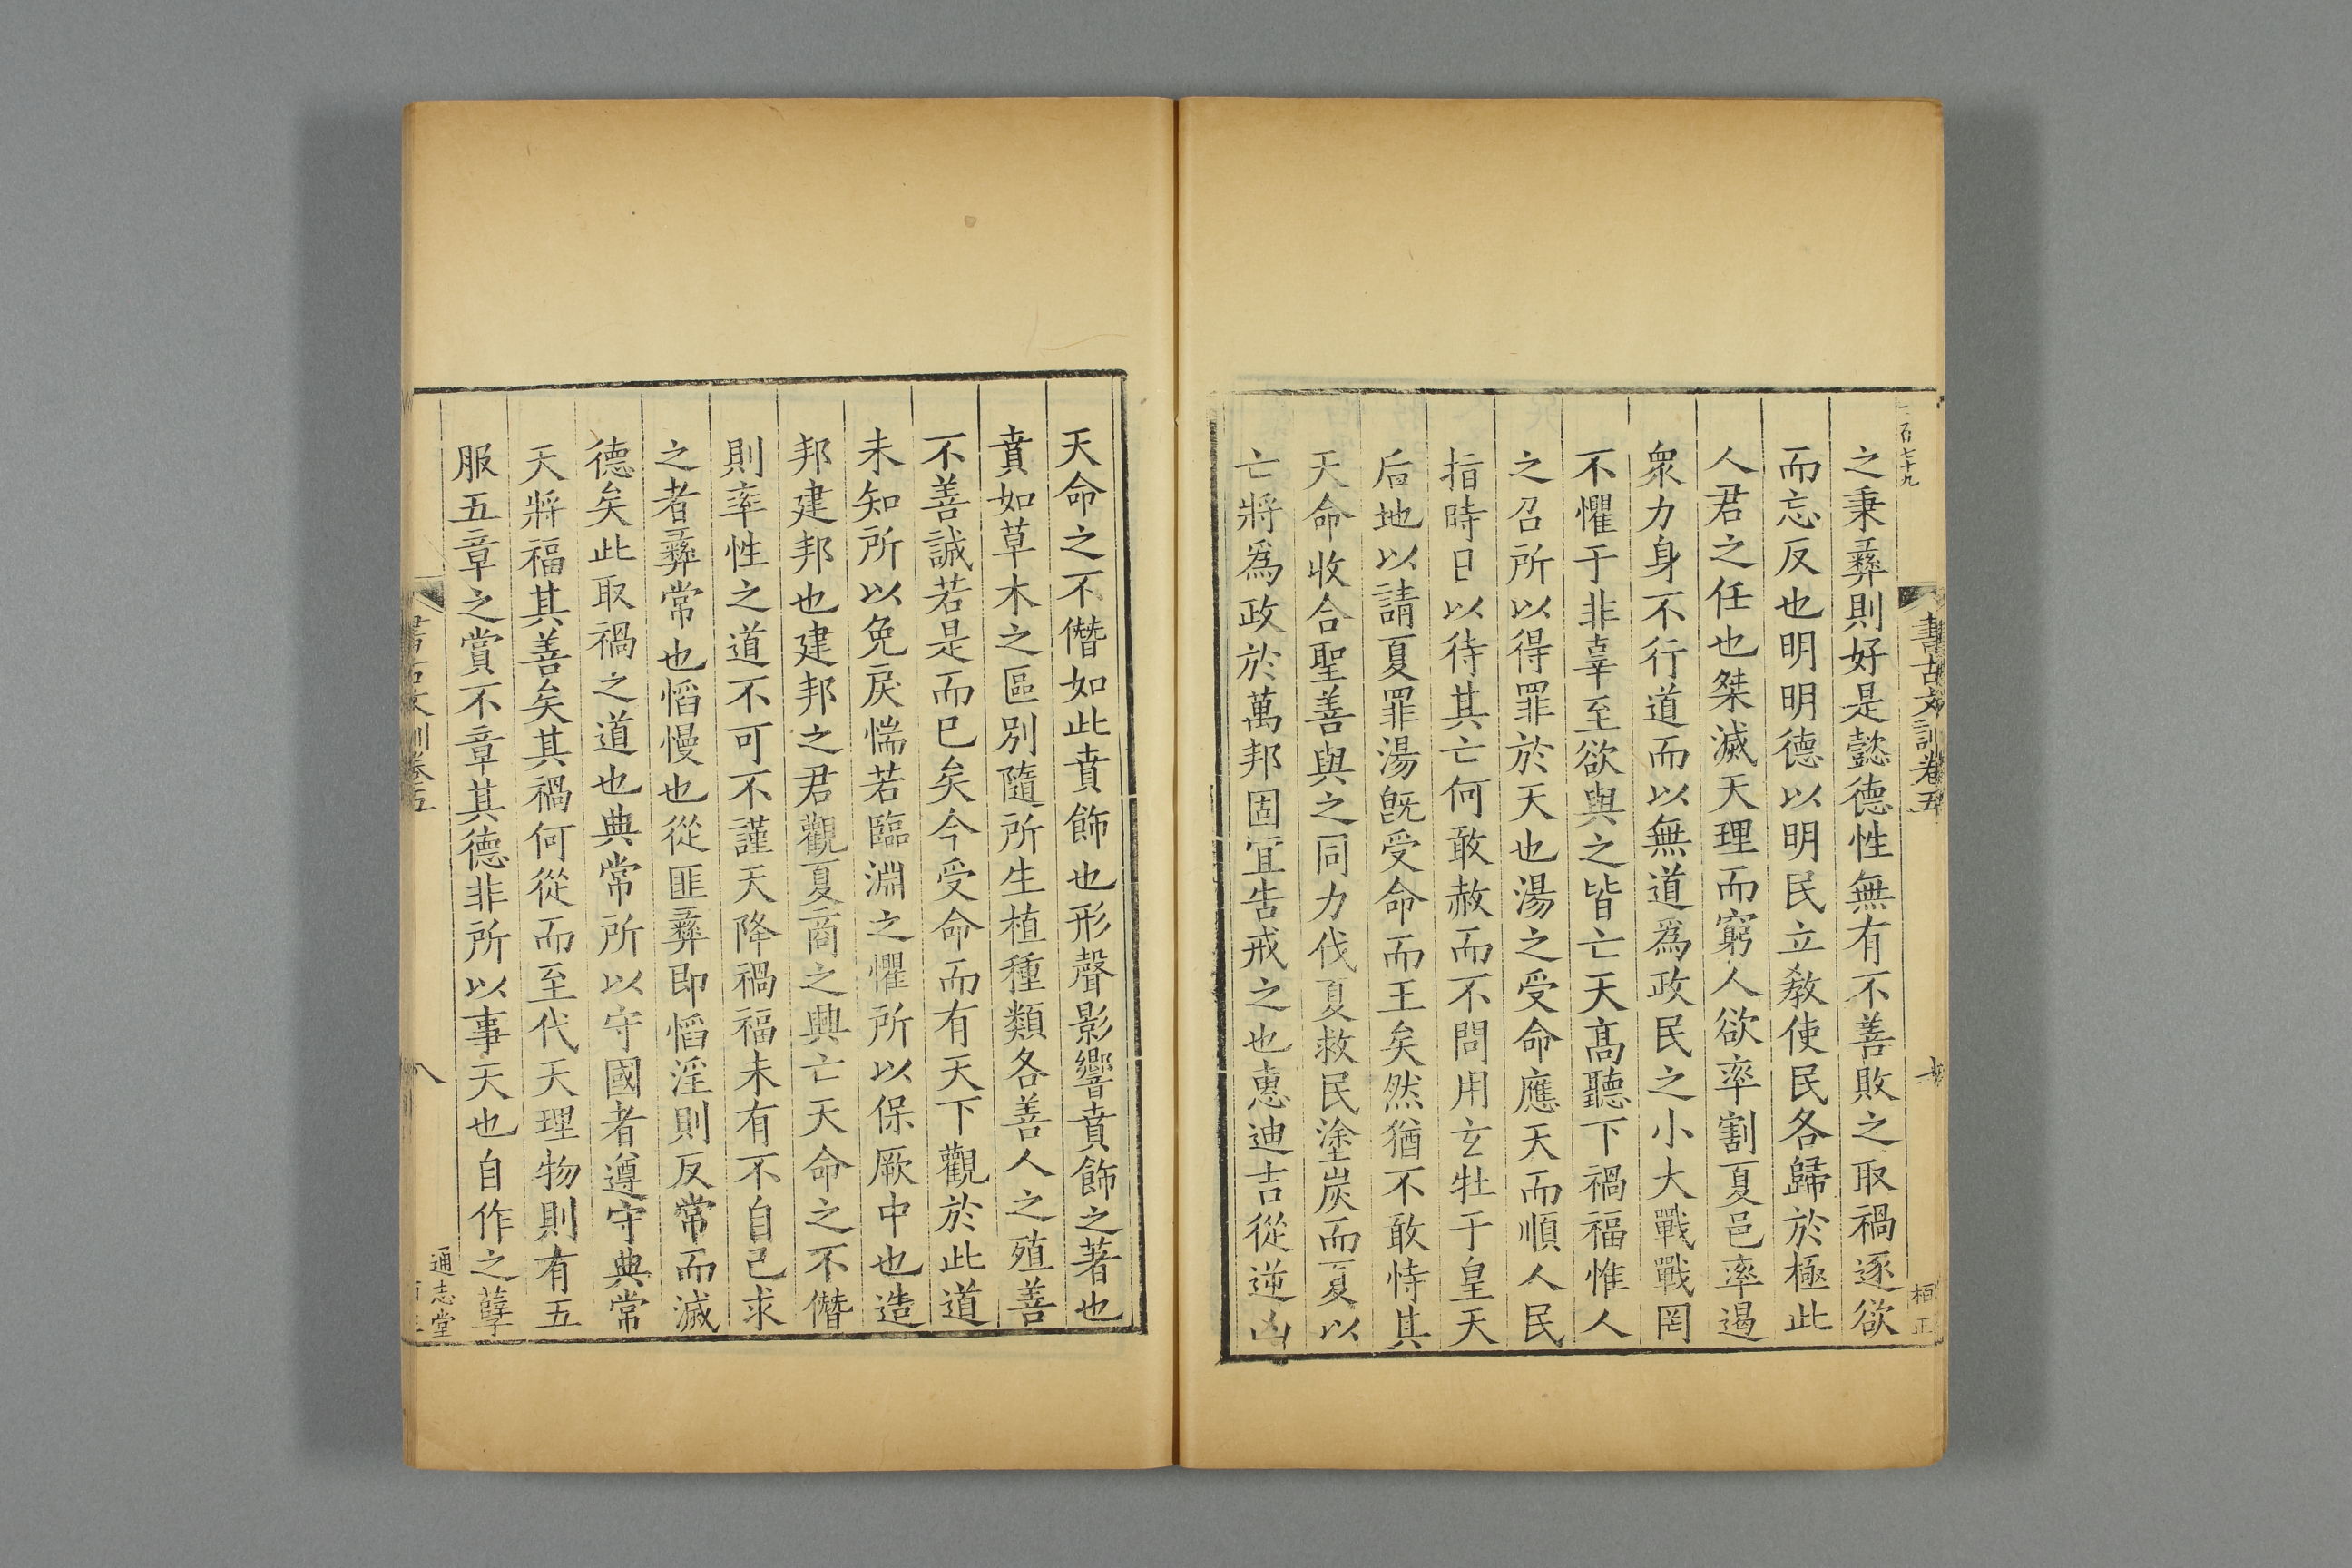 二百七十九
書古文訓卷五
七
栢正
之秉彝則好是懿德性無有不善敗之取禍逐欲
而忘反也明明德以明民立教使民各歸於極此
人君之任也桀滅天理而窮人欲率割夏邑率遏
衆力身不行道而以無道爲政民之小大戰戰罔
不懼于非辜至欲與之皆亡天高聽下禍福惟人
之召所以得罪於天也湯之受命應天而順人民
指時日以待其亡何敢赦而不問用玄牡于皇天
后地以請夏罪湯旣受命而王矣然猶不敢恃其
天命收合聖善與之同力伐夏救民塗炭而夏以
亡將爲政於萬邦固宜告戒之也惠迪吉從逆凶
天命之不僭如此賁飾也形聲影響賁飾之著也
賁如草木之區別隨所生植種類各善人之殖善
不善誠若是而已矣今受命而有天下觀於此道
未知所以免戾惴若臨淵之懼所以保厥中也造
邦建邦也建邦之君觀夏商之興亡天命之不僭
則率性之道不可不謹天降禍福未有不自己求
之者彝常也慆慢也從匪彝即慆淫則反常而滅
德矣此取禍之道也典常所以守國者遵守典常
天將福其善矣其禍何從而至代天理物則有五
服五章之賞不章其德非所以事天也自作之孽
書古文訓卷五
八
通志堂